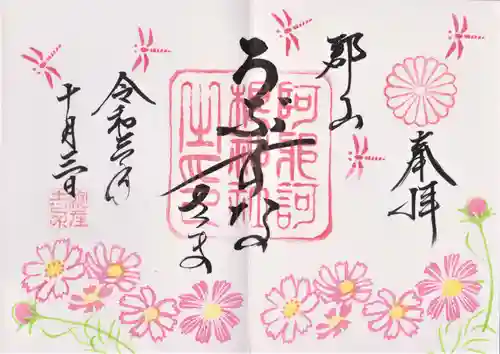 奉拝
郡山
うぶすなさま
阿邪訶
根神社
之印
令和三年
十月三日